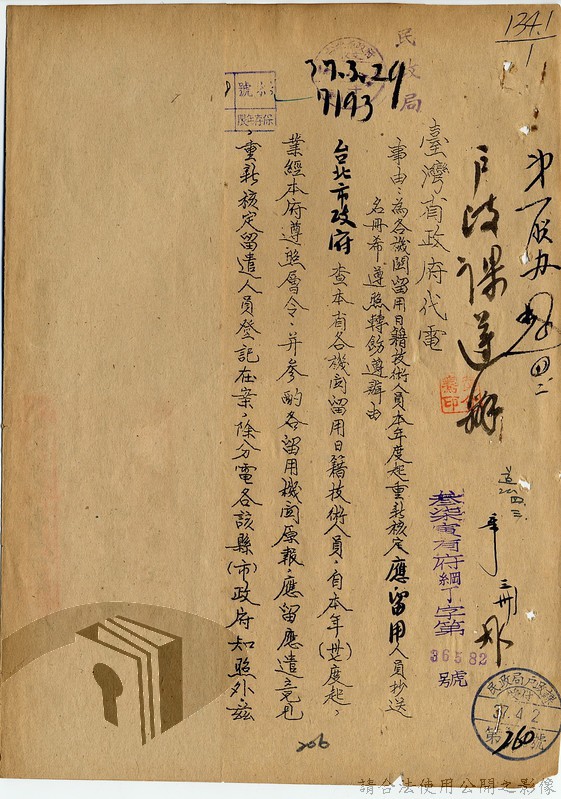 134.1
1
戶政課遵辦
民政局
37.3.29
7193
號
保存年限
臺灣省政府代電
事由：為各機関留用日籍技術人員本年度起重新核定應留用人員抄送
名冊希遵照轉飭遵辦由
台北市政府　查本省各機関留用日籍技術人員，自本年(卅七)度起，
業經本府遵照層令，并參酌各留用機関原報，應留應遣意見
，重新核定留遣人員登記在案，除分電各該縣(市)政府知照外茲
叁柒寅有府綱丁字第
36582
號
民政局戶政課
收件
37.4.2
第260號
206
請合法使用公開之影像